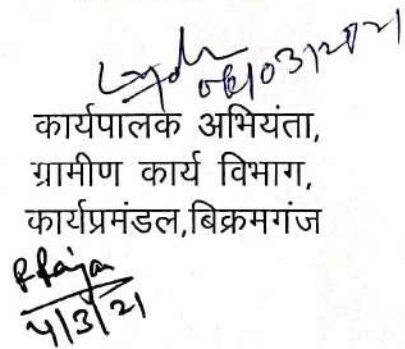 06/03/2021
कार्यपालक अभियंता,
ग्रामीण कार्य विभाग,
कार्यप्रमंडल,बिक्रमगंज
4/3/21